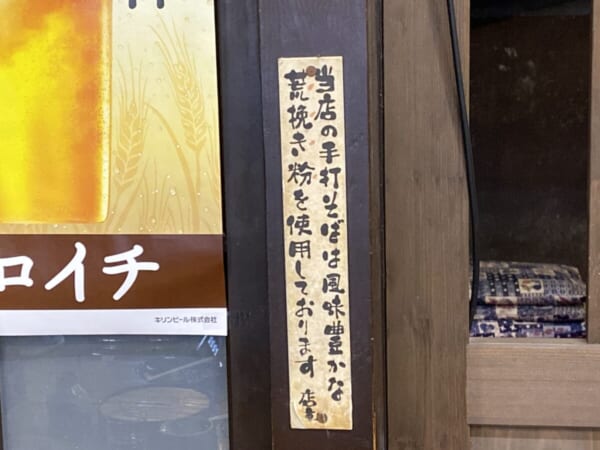 当店の手打そばは風味豊かな
荒挽き粉を使用しております
店主
ロイチ
キリンビール株式会社